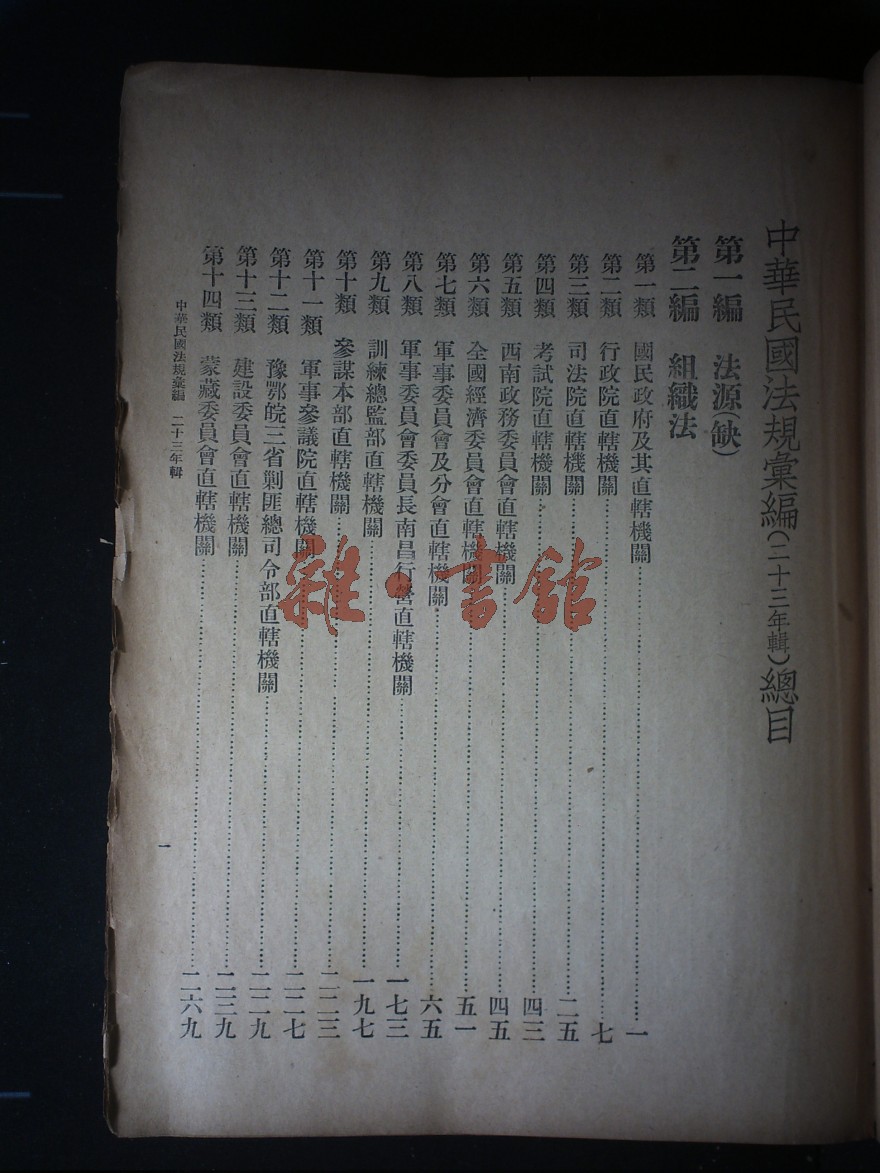 中華民國法規彙編(二十三年輯)總目
第一編 法源(缺)
第二編 組織法
第一類 國民政府及其直轄機關……一
第二類 行政院直轄機關……七
第三類 司法院直轄機關……二五
第四類 考試院直轄機關……四三
第五類 西南政務委員會直轄機關……四五
第六類 全國經濟委員會直轄機關……五一
第七類 軍事委員會及分會直轄機關……六五
第八類 軍事委員會委員長南昌行營直轄機關……一七三
第九類 訓練總監部直轄機關……一九七
第十類 參謀本部直轄機關……二二三
第十一類 軍事參議院直轄機關……二二七
第十二類 豫鄂皖三省剿匪總司令部直轄機關……二二九
第十三類 建設委員會直轄機關……二三九
第十四類 蒙藏委員會直轄機關……二六九
中華民國法規彙編 二十三年輯
一
雜·書館